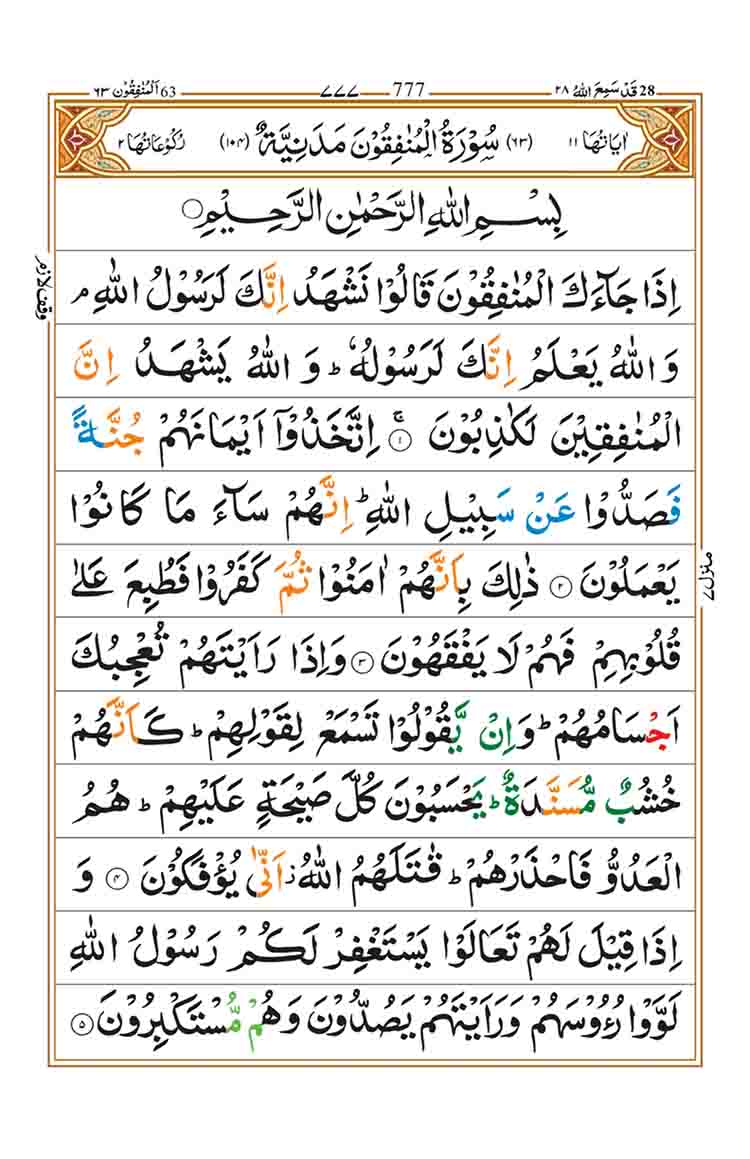 28 قَدْ سَمِعَ اللّٰهُ ٢٨ 777 ٧٧٧ 63 اَلْمُنٰفِقُوْن ٦٣
اٰيَاتُهَا ١١ (٦٣) سُوْرَةُ الْمُنٰفِقُوْنَ مَدَنِيَّةٌ (١٠٤) رُكُوْعَاتُهَا ٢
بِسْمِ اللّٰهِ الرَّحْمٰنِ الرَّحِيْمِ
اِذَا جَآءَكَ الْمُنٰفِقُوْنَ قَالُوْا نَشْهَدُ اِنَّكَ لَرَسُوْلُ اللّٰهِ ۘ
وقف لازم
وَ اللّٰهُ يَعْلَمُ اِنَّكَ لَرَسُوْلُهٗ ؕ وَ اللّٰهُ يَشْهَدُ اِنَّ
الْمُنٰفِقِيْنَ لَكٰذِبُوْنَ ۚ ١ اِتَّخَذُوْۤا اَيْمَانَهُمْ جُنَّةً
فَصَدُّوْا عَنْ سَبِيْلِ اللّٰهِ ؕ اِنَّهُمْ سَآءَ مَا كَانُوْا
منزل ٧
يَعْمَلُوْنَ ٢ ذٰلِكَ بِاَنَّهُمْ اٰمَنُوْا ثُمَّ كَفَرُوْا فَطُبِعَ عَلٰى
قُلُوْبِهِمْ فَهُمْ لَا يَفْقَهُوْنَ ٣ وَاِذَا رَاَيْتَهُمْ تُعْجِبُكَ
اَجْسَامُهُمْ ؕ وَاِنْ يَّقُوْلُوْا تَسْمَعْ لِقَوْلِهِمْ ؕ كَاَنَّهُمْ
خُشُبٌ مُّسَنَّدَةٌ ؕ يَحْسَبُوْنَ كُلَّ صَيْحَةٍ عَلَيْهِمْ ؕ هُمُ
الْعَدُوُّ فَاحْذَرْهُمْ ؕ قٰتَلَهُمُ اللّٰهُ ؗ اَنّٰى يُؤْفَكُوْنَ ٤ وَ
اِذَا قِيْلَ لَهُمْ تَعَالَوْا يَسْتَغْفِرْ لَكُمْ رَسُوْلُ اللّٰهِ
لَوَّوْا رُءُوْسَهُمْ وَرَاَيْتَهُمْ يَصُدُّوْنَ وَهُمْ مُّسْتَكْبِرُوْنَ ٥